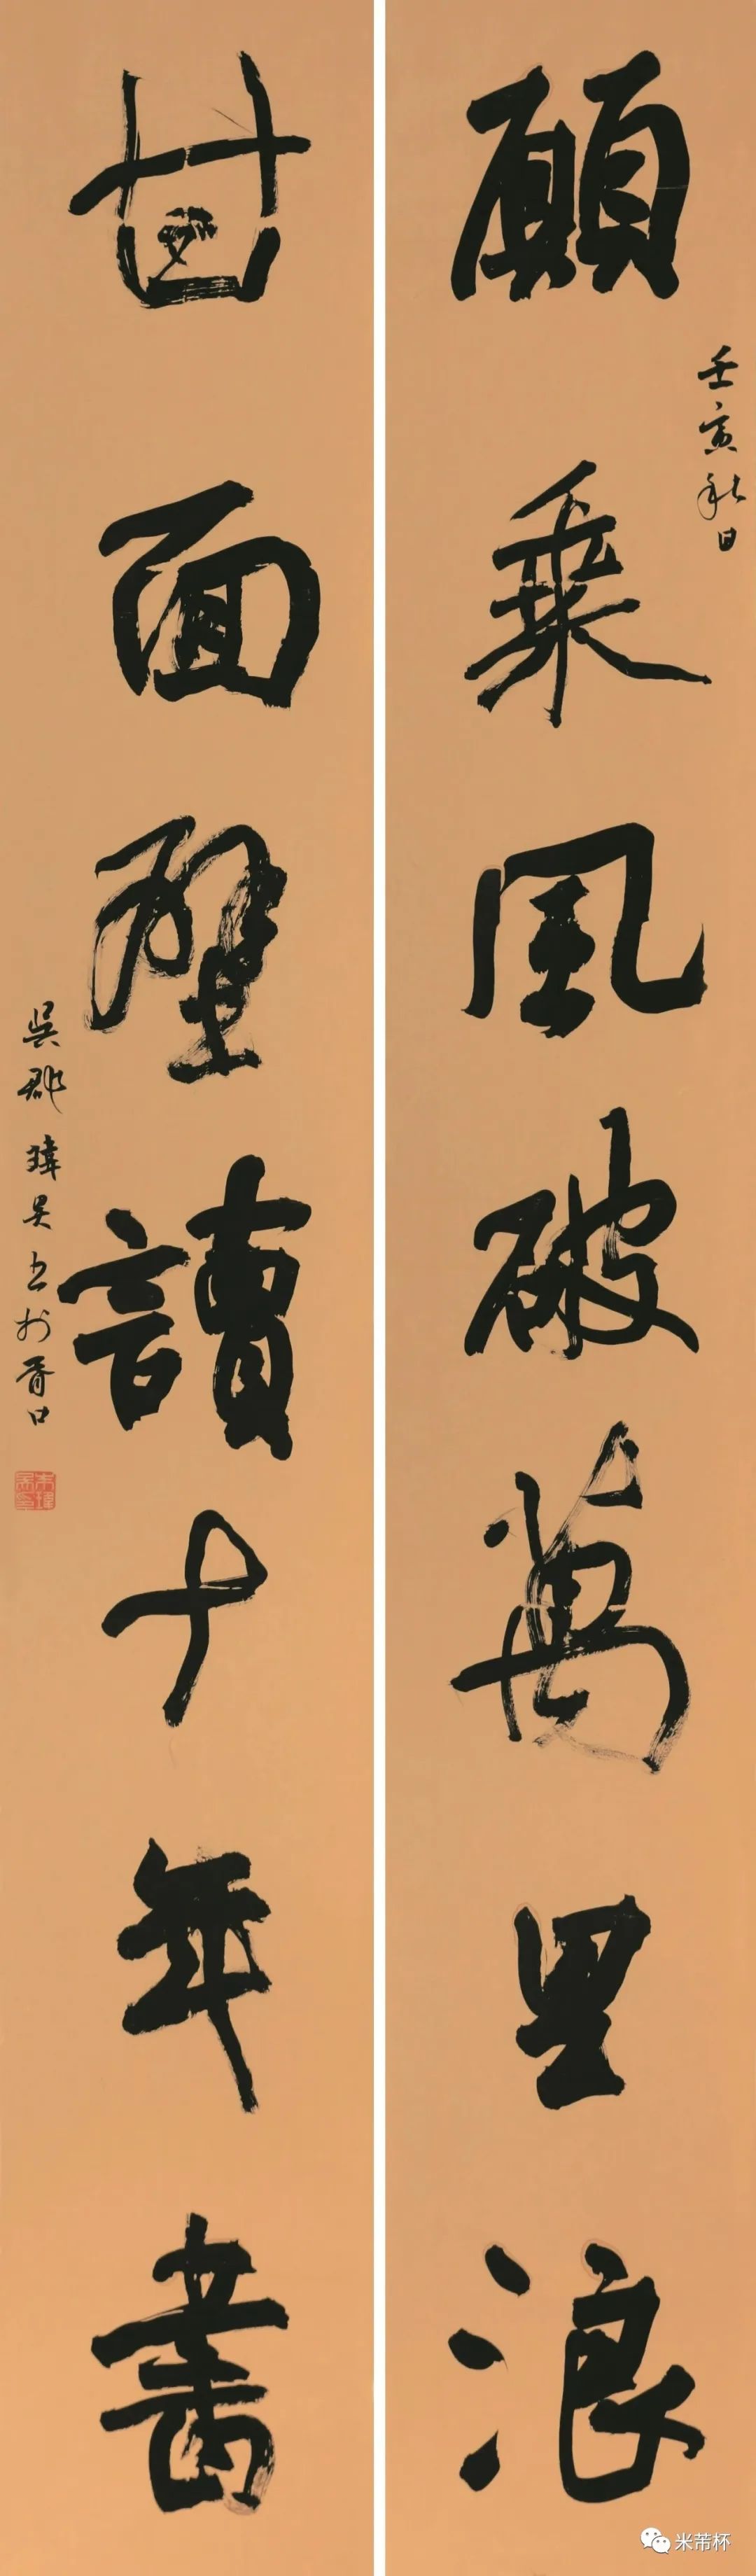 願乘風破萬里浪
壬寅秋日
甘面壁讀十年書
吳郡瑋昊书於胥口
米芾杯